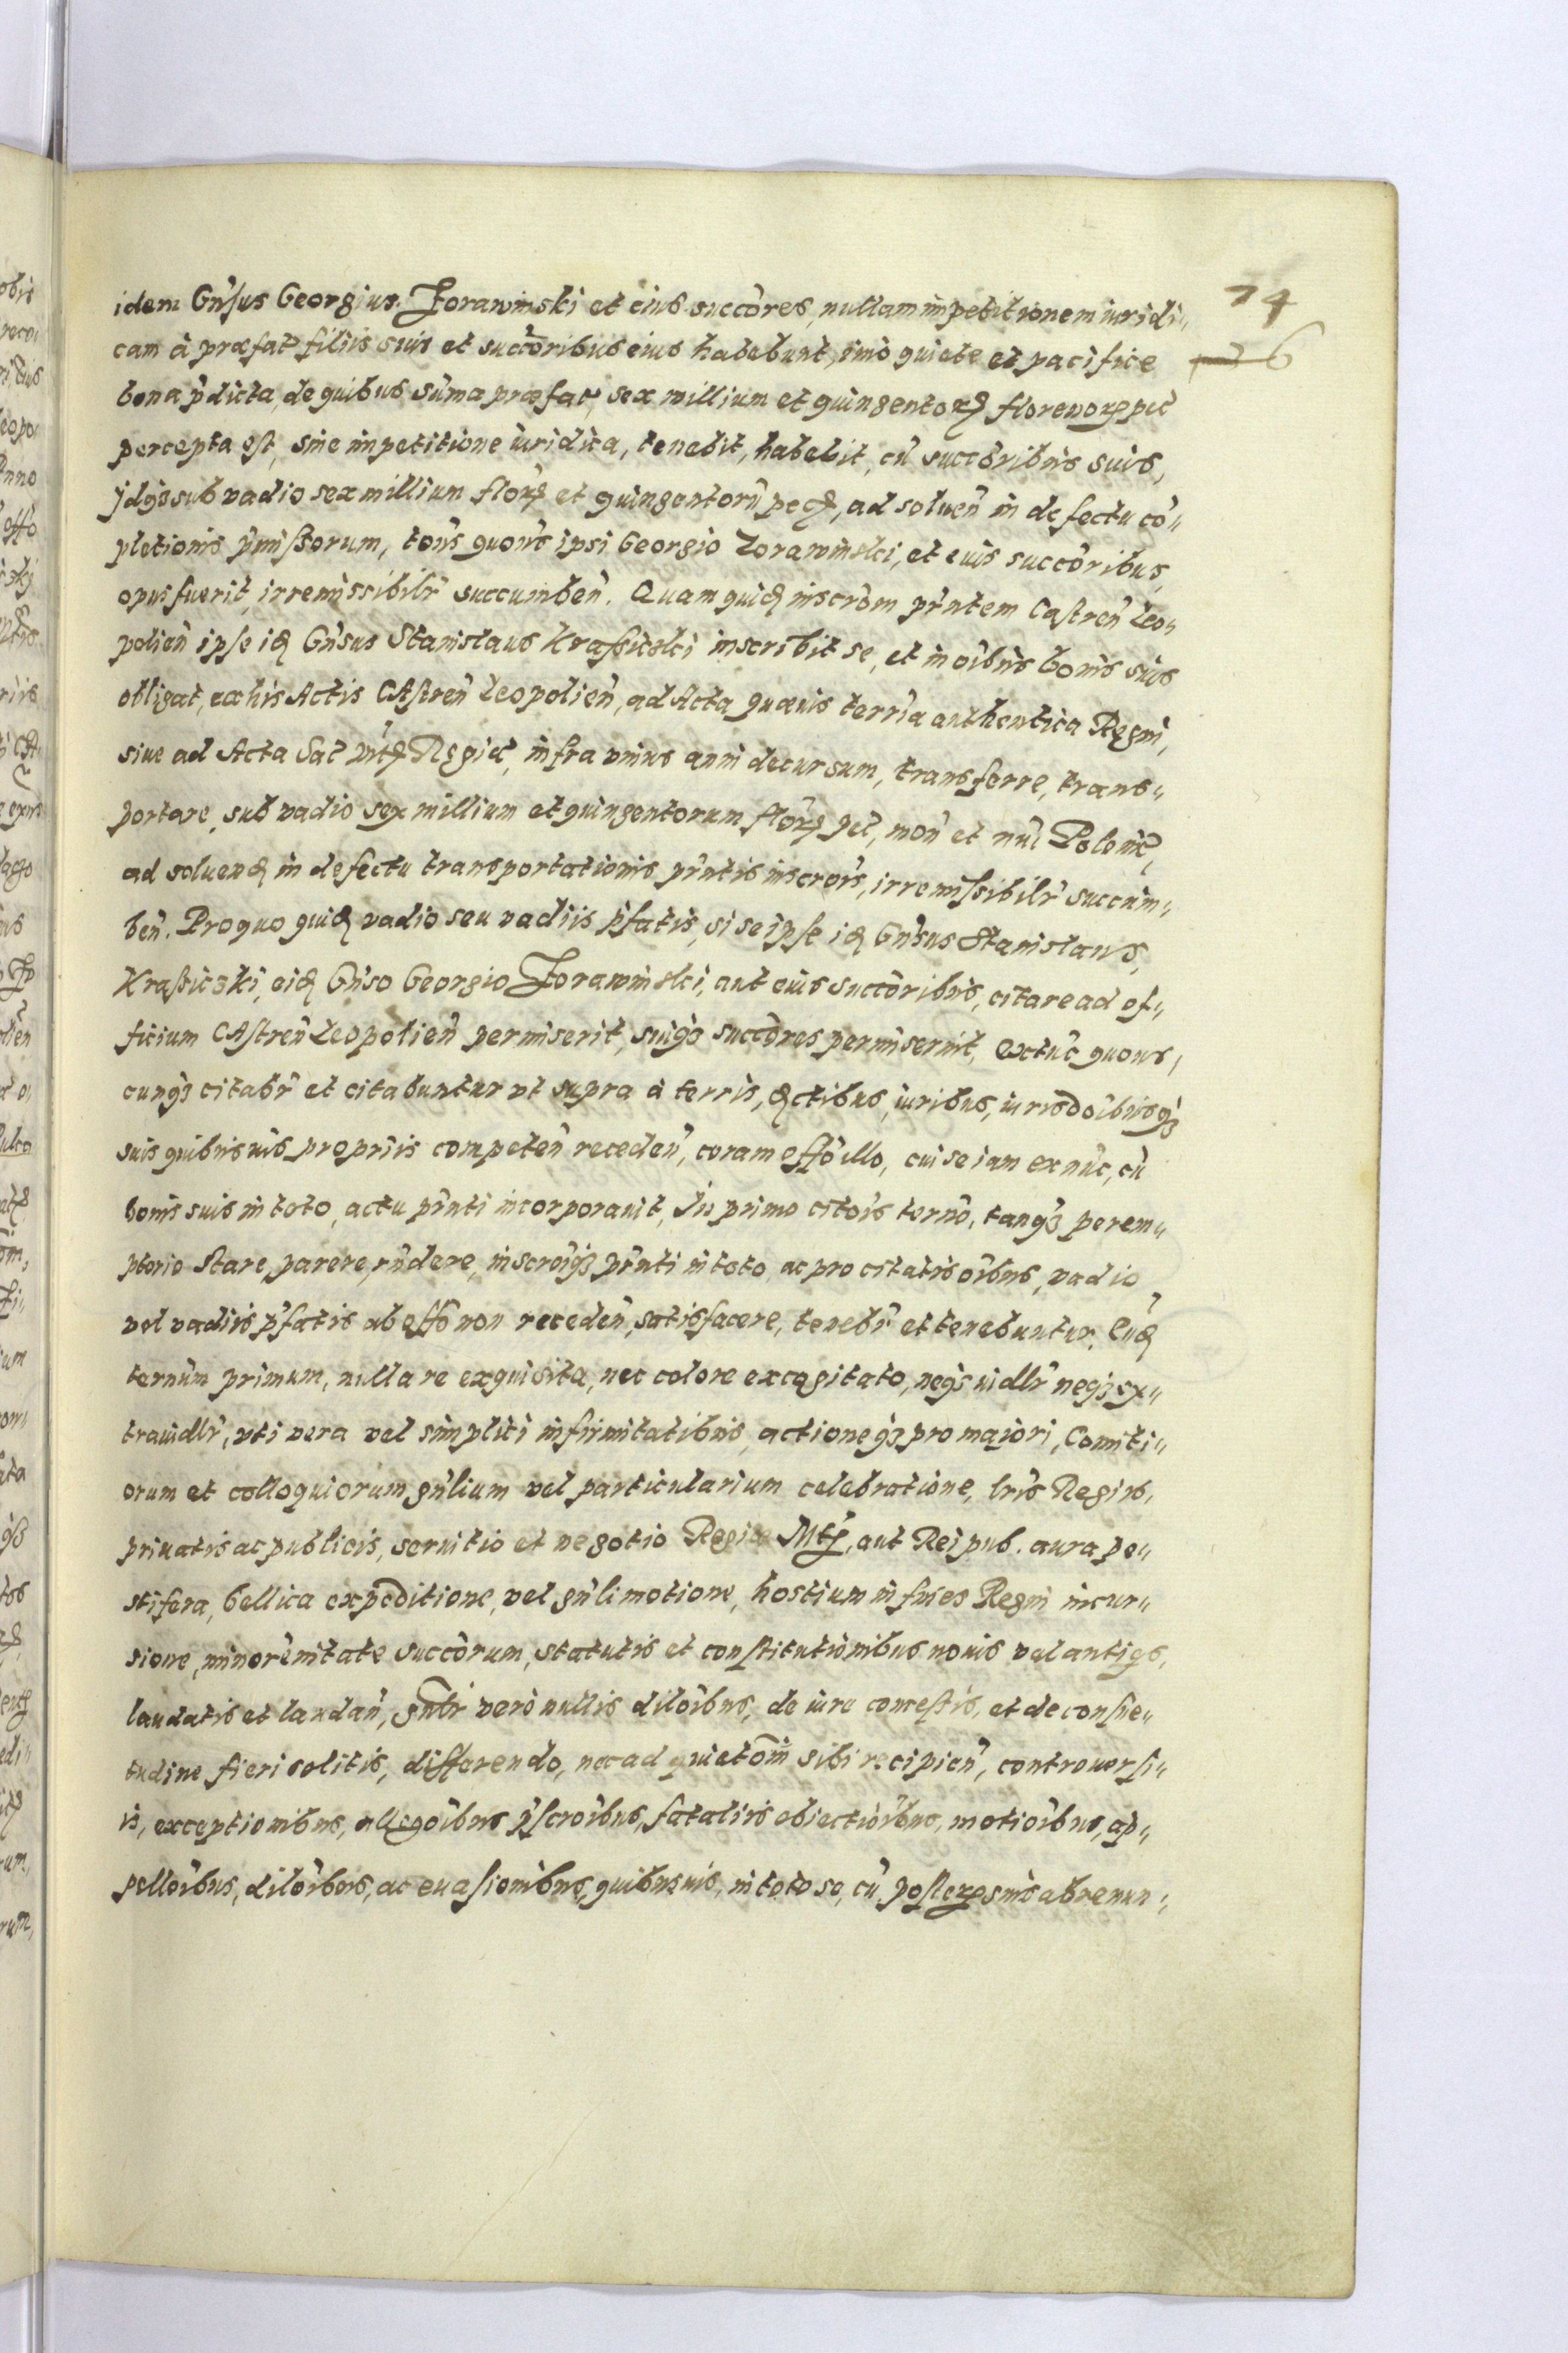 74
26
idem Gn̄sus Georgius Zorawinski et eius succ̄ores, nullam impetitionem iuridi„
cam à præfat filiis suis et succ̄oribus eius habebunt, imò quiete et pacifice
bona p̄dicta, de quibus sūma præfat, sex millium et quingentoꝝ florenoꝝ pec̄
percepta est, sine impetitione iuridica, tenebit, habebit, cū succ̄oribus suis,
Jdqꝫ sub vadio sex millium floꝝ et quingentorū pec̄, ad soluen̄ in defectu cō„
pletionis p̄missorum, tōns quōns ipsi Georgio Zorawinski, et euis succ̄oribus,
opus fuerit, irremissibilr̄ succumben̄. Quam quid inscrōm pn̄tem Castren̄ Leo„
polien̄ ipse id Gn̄sus Stanislaus Krassicki inscribit se, et in oībus bonis suis
obligat, ex his Actis CAstren̄ Leopolien̄, ad Acta quæuis terrīa authentica Regni,
siue ad Acta Sac̄ Mt̄ Regiæ, infra vnius anni decursum, transferre, trans„
portare, sub vadio sex millium et quingentorum floꝝ pec̄, mon̄ et nūi Poloniæ,
ad soluend in defectu transportationis pn̄tis inscrōis, irremissibilr̄ succum„
ben̄. Pro quo quid vadio seu vadiis p̄fatis, si se ipse id Gn̄sus Stanislaus,
Krasiczki, eid Gn̄so Georgio Zorawinski, aut eius succ̄oribus, citare ad of„
ficium CAstren̄ Leopolien̄ permiserit, suiqꝫ succ̄ores permiserint, extūc quous„
cunqꝫ citabr̄ et citabuntur vt supra à terris, dictibus, iuribus, iurisdoībusqꝫ
suis quibusuis proprīis competen̄ receden̄, coram offō illo, cui se iam ex nūc, cū
bonis suis in toto, actu pn̄ti incorporauit, In primo citōis ternō, tanqꝫ perem„
ptorio stare, parere, rn̄dere, inscrōiqꝫ pn̄ti in toto ac pro citatis oībus, vadio
vel vadiis p̄fatis ab offō non receden̄, satisfacere, tenebr̄ et tenebuntur. Eūd
ternūm primum, nulla re exquisita, nec colore excogitato, neqꝫ uidlr̄ neqꝫ ex„
trauidlr̄, vti vera vel simplici infirmitatibus, actioneqꝫ pro maiori, Comiti„
orum et colloquiorum gn̄lium vel particularium celebratione, lr̄is Regiis,
priuatis ac publicis, seruitio et negotio Regiæ Mt̄, aut Rei pub. aura pe„
stifera, bellica expeditione, vel gn̄li motione, hostium in fines Regni incur„
sione, minorēnitate succ̄orum, statutis et constitutionibus nouis vel antiqs,
laudatis et laudan̄, gn̄lr̄ verò nullis diloībus, de iure concessis, et de consue„
tudine fieri solitis, differendo, nec ad quietōm sibi recipien̄, controuersi„
is, exceptionibus, allegōibus p̄scrōibus, fataliis obiectiōībus, motiōibus, ap„
pellōibus, dilōibus, ac euasionibus, quibusuis, in toto se, cū posteꝝ suis abrenun„